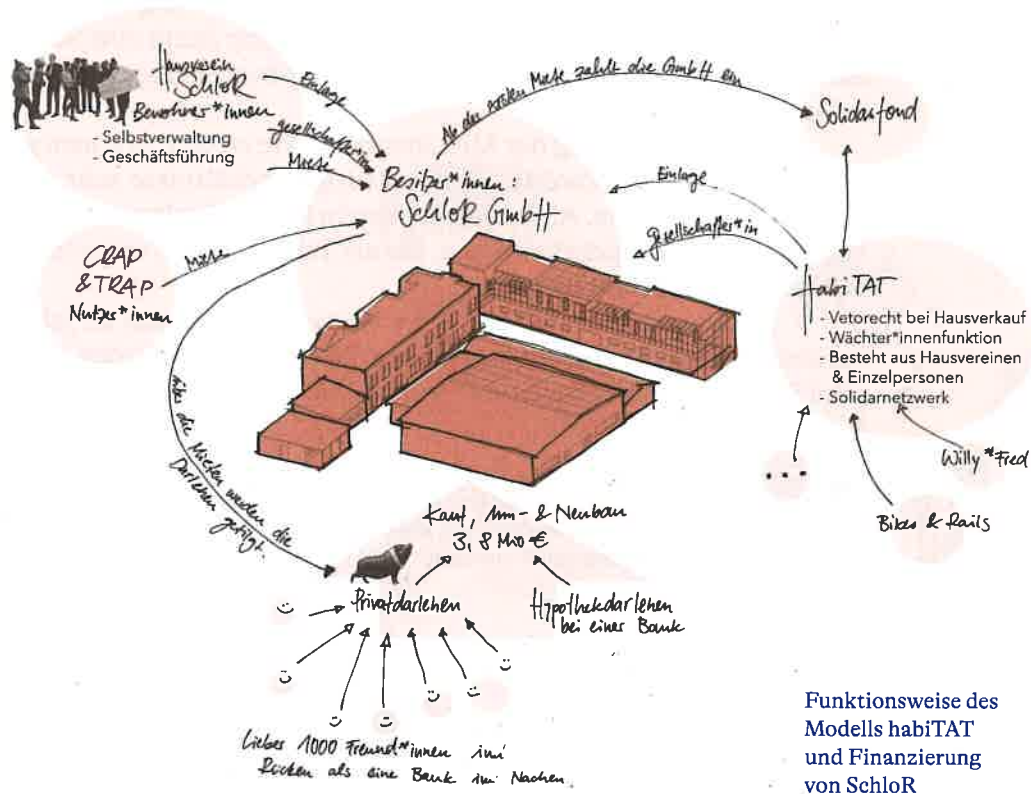 Hausverein
SchloR
Bewohner*innen
- Selbstverwaltung
- Geschäftsführung
Einlage
gesellschafter*in
Miete
Ab der ersten Miete zahlt die GmbH ein
Solidarfond
Besitzer*innen:
SchloR GmbH
Einlage
Gesellschafter*in
CRAP
& TRAP
Nutzer*innen
Miete
habiTAT
- Vetorecht bei Hausverkauf
- Wächter*innenfunktion
- Besteht aus Hausvereinen
& Einzelpersonen
- Solidarnetzwerk
...
Willy*Fred
Bikes & Rails
über die Mieten werden die
Darlehen getilgt.
Kauf, Um- & Neubau
3,8 Mio €
Privatdarlehen
Hypothekdarlehen
bei einer Bank
Lieber 1000 Freund*innen im
Rücken als eine Bank im Nacken
Funktionsweise des
Modells habiTAT
und Finanzierung
von SchloR